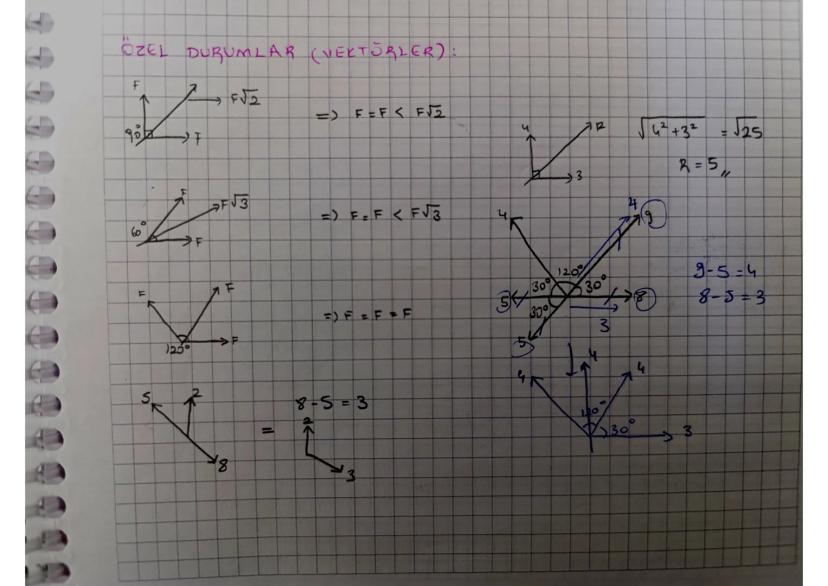 ÖZEL DURUMLAR (VEKTÖRLER):
F
F√2
90°
F
=) F = F < F√2
4
R
3
√4²+3² = √25
R = 5,,
F
F√3
60°
F
=) F = F < F√3
4
4
9
120°
30°
30°
5
8
30°
3
5
9-5 = 4
8-5 = 3
F
F
120°
F
=) F = F = F
5
2
8
=
8-5 = 3
2
3
4
4
4
120°
30°
3